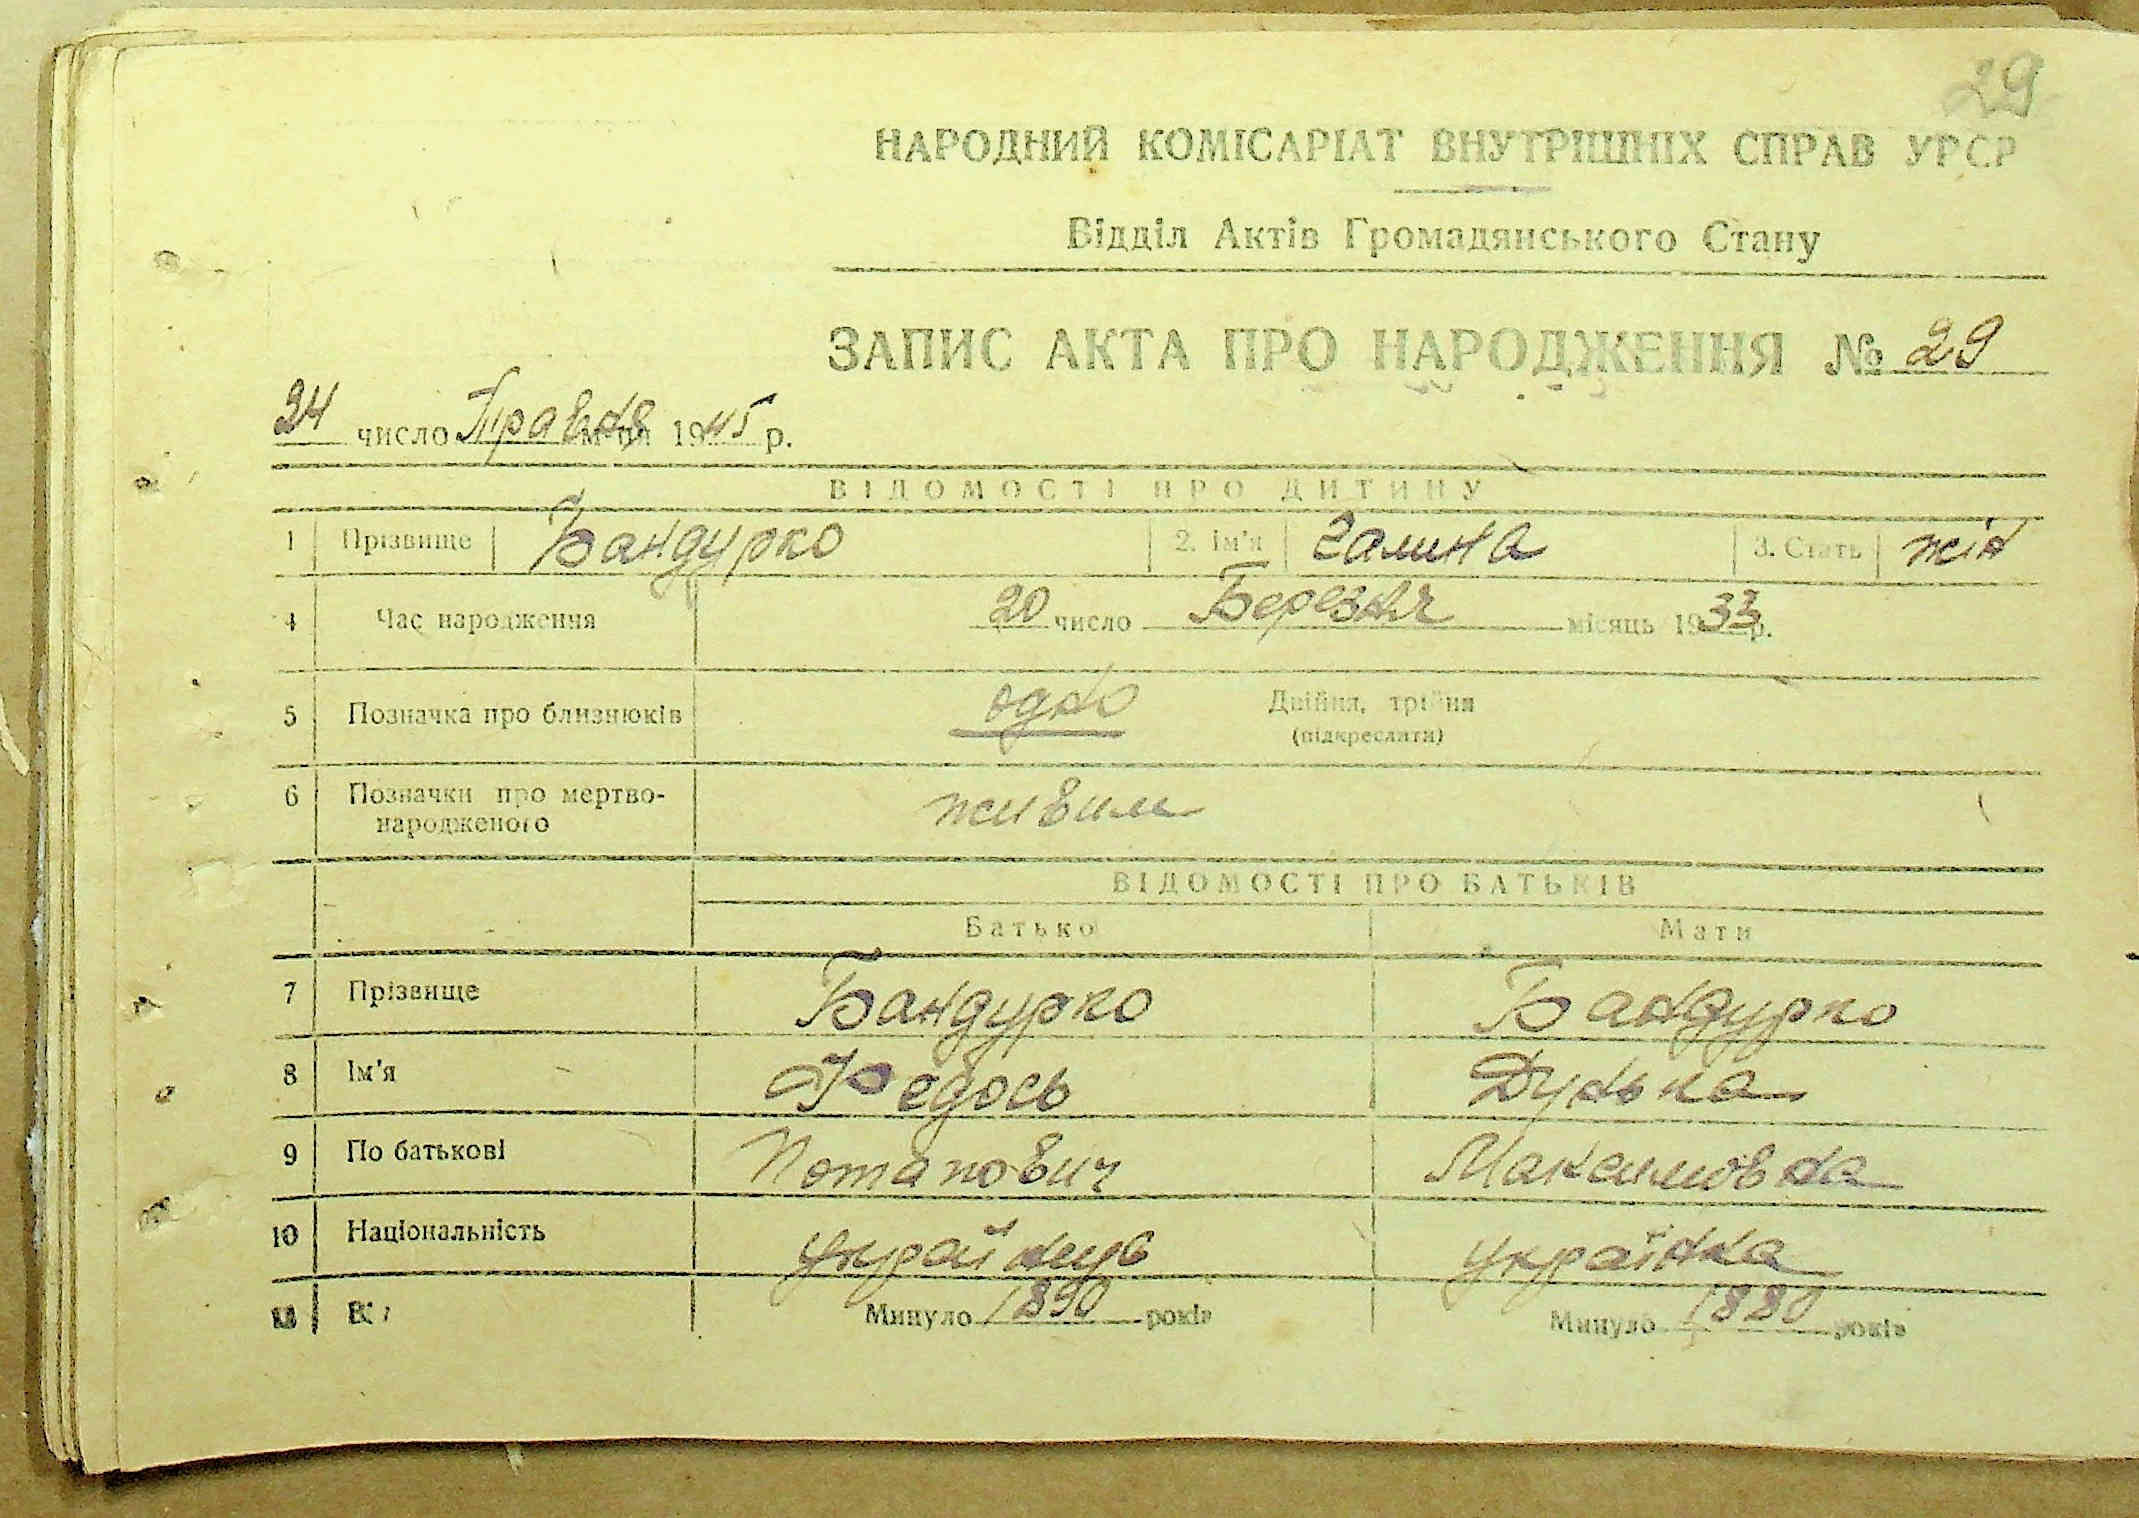 29
НАРОДНИЙ КОМІСАРІАТ ВНУТРІШНІХ СПРАВ УРСР
Відділ Актів Громадянського Стану
ЗАПИС АКТА ПРО НАРОДЖЕННЯ № 29
24 число Травня м-ця 1945 р.
ВІДОМОСТІ ПРО ДИТИНУ
1 Прізвище Бандурко 2. Ім'я Галина 3. Стать жін
4 Час народження 20 число Березня місяць 1933 р.
5 Позначка про близнюків одно Двійня, трійня
(підкреслити)
6 Позначки про мертво-
народженого живим
ВІДОМОСТІ ПРО БАТЬКІВ
Батько Мати
7 Прізвище Бандурко Бандурко
8 Ім'я Федось Дунька
9 По батькові Потапович Максимовна
10 Національність українць українка
Минуло 1890 років Минуло 1880 років